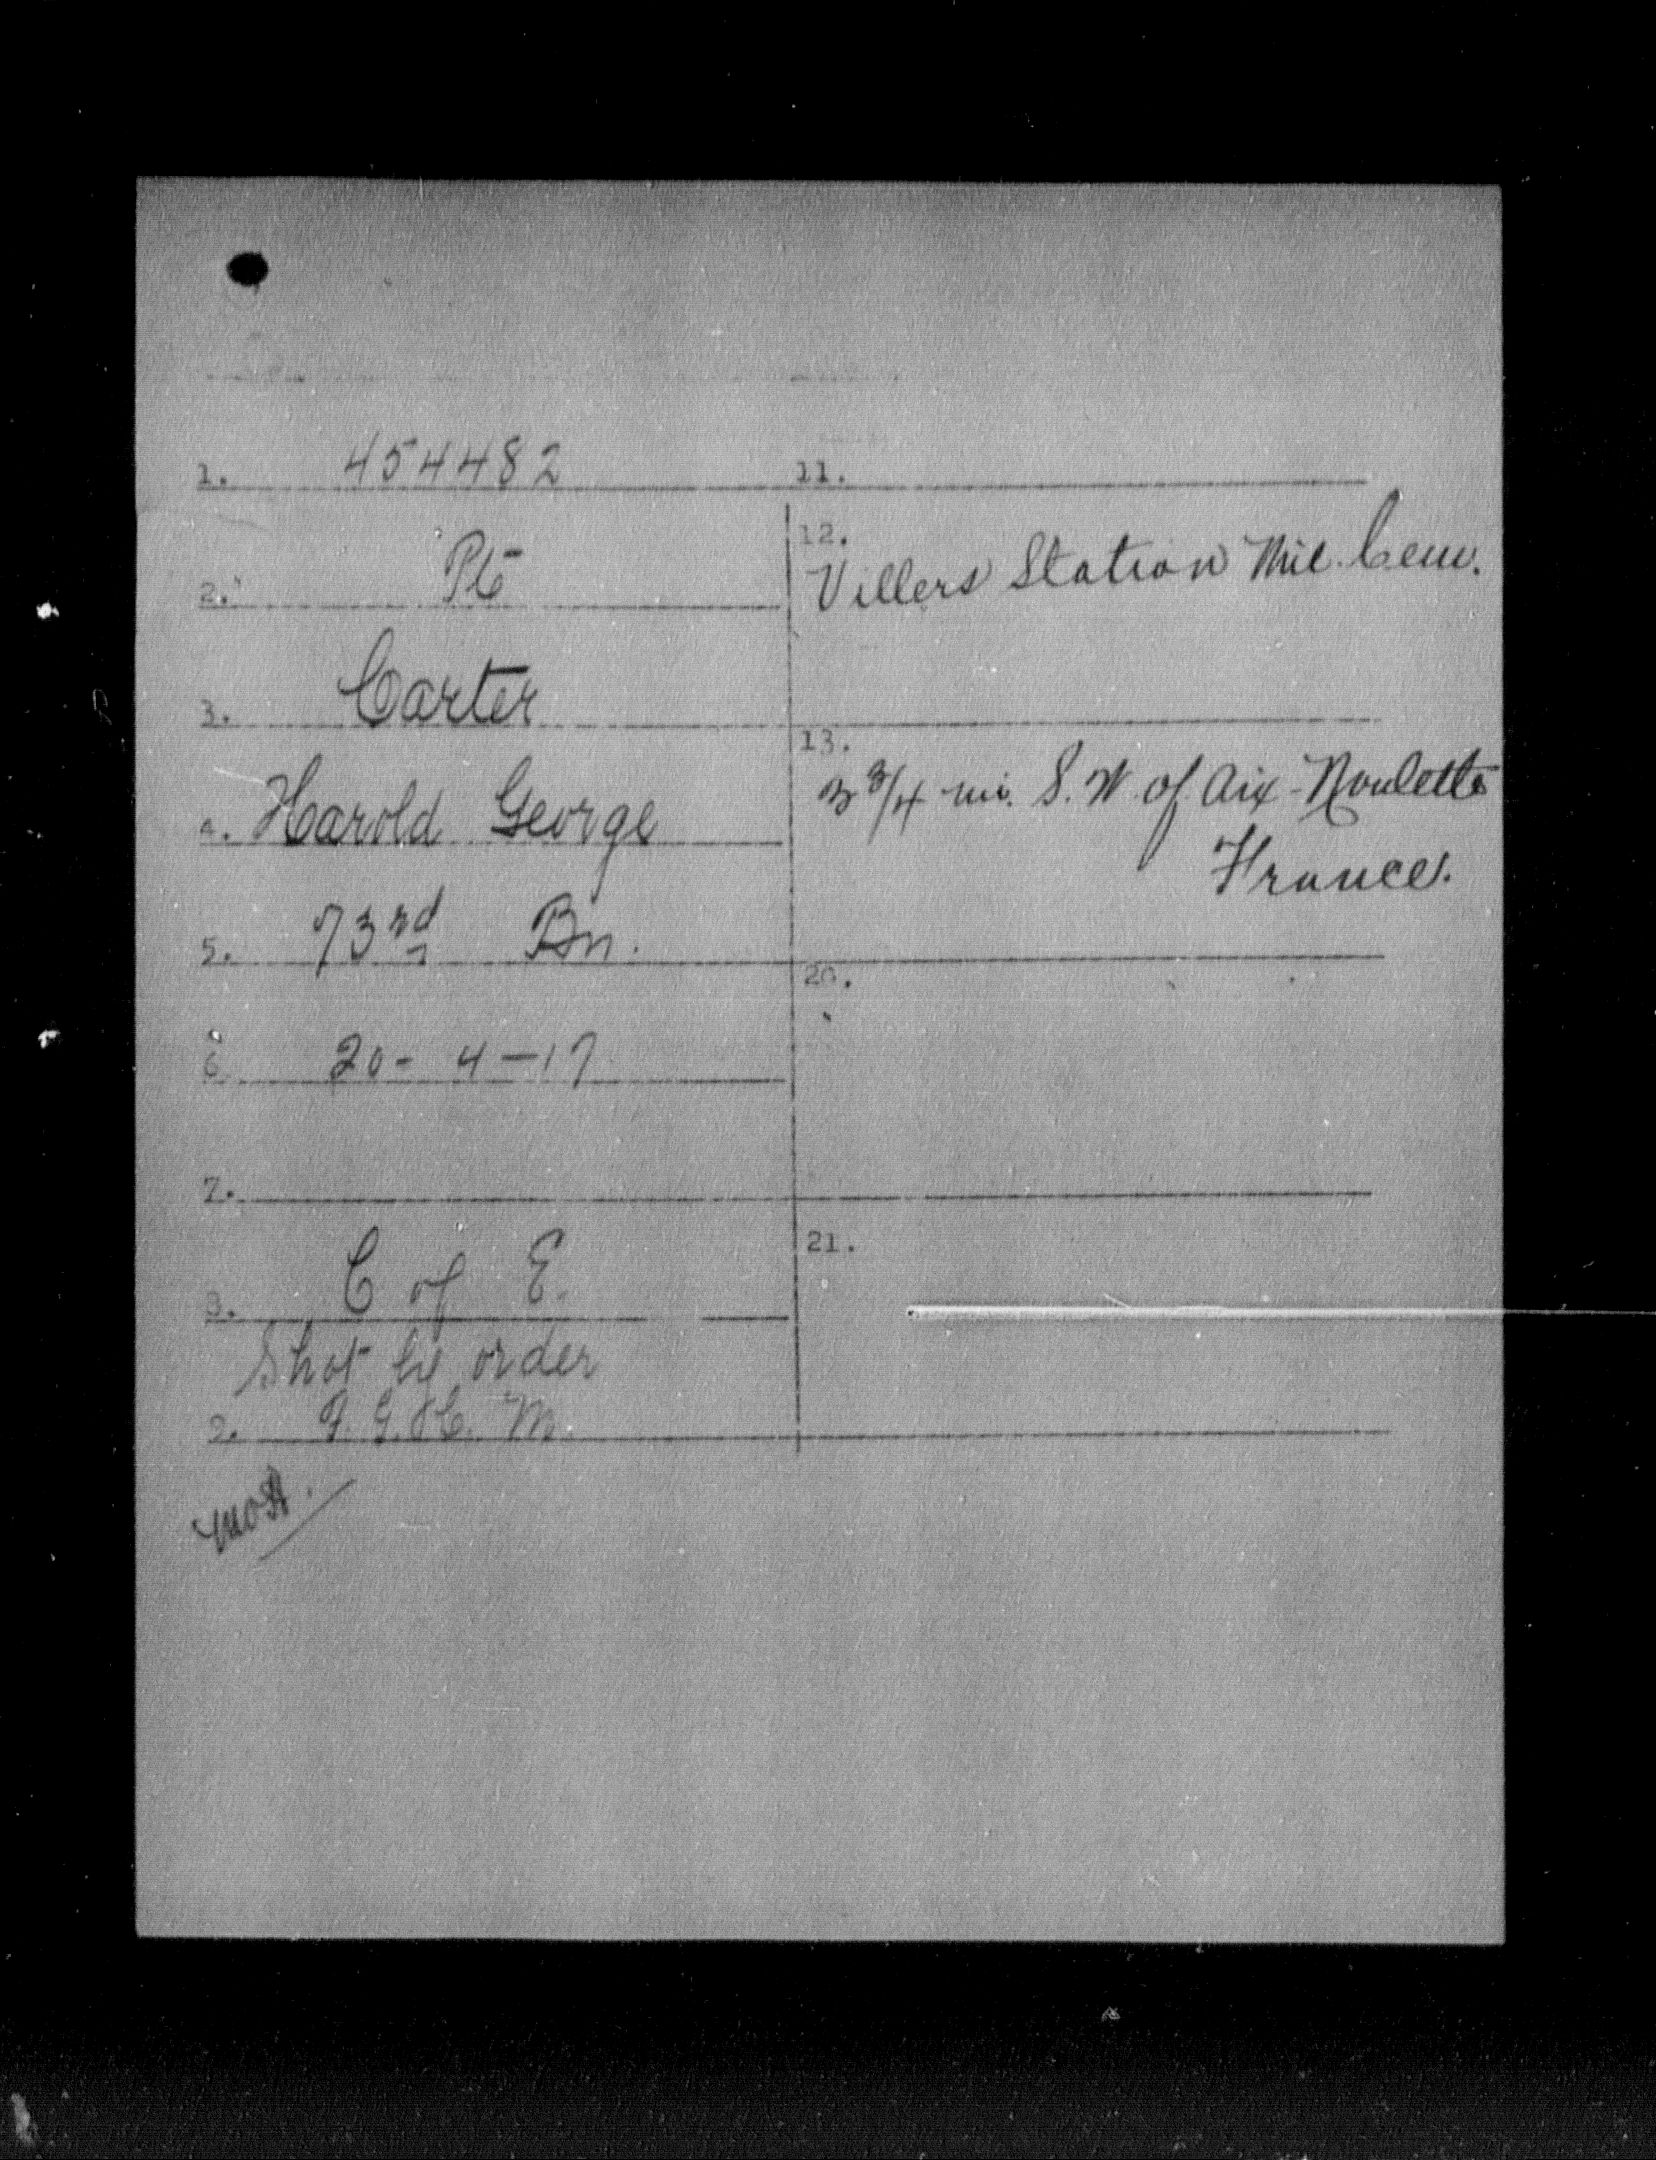 1. 454482
2. Pte
3. Carter
4. Harold George
5. 73rd Bn.
6. 20-4-17
7.
8. C of E.
Shot by order
9. F. G. C. M.
11.
12.
Villers Station Mil. Cem.
13.
3 3/4 mi. S. W. of Aix-Noulette
France.
20.
21.